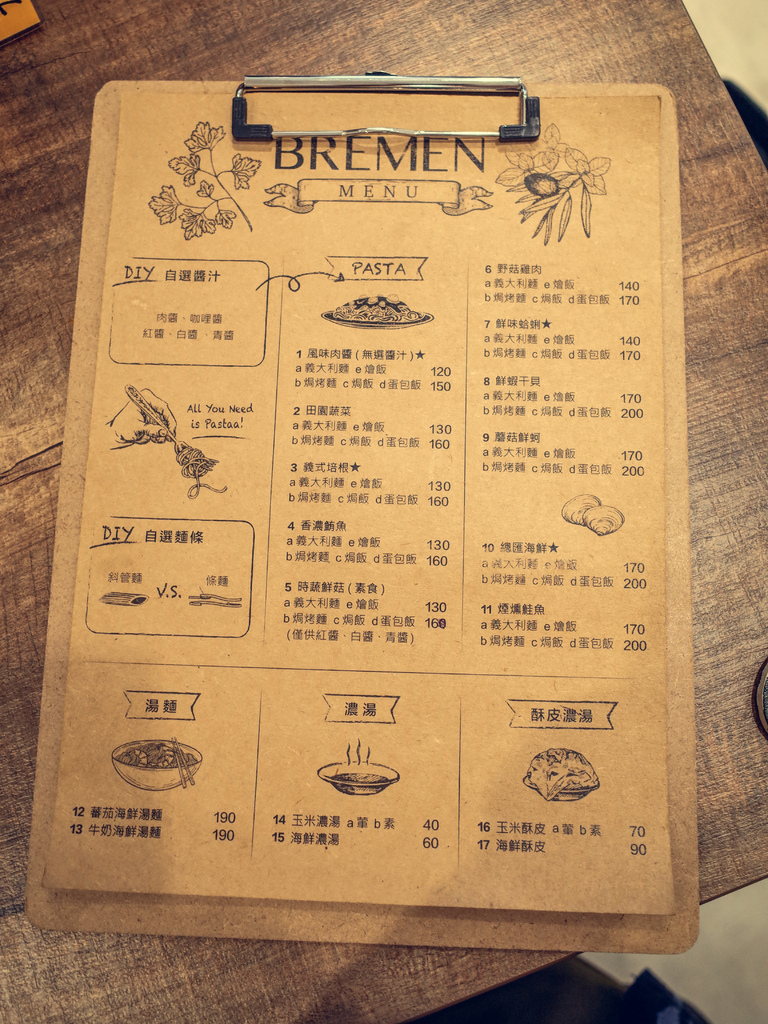 BREMEN
MENU
DIY 自選醬汁
肉醬、咖哩醬
紅醬、白醬、青醬
All You Need
is Pastaa!
DIY 自選麵條
斜管麵 V.S. 條麵
PASTA
1 風味肉醬 ( 無選醬汁 )★
a 義大利麵 e 燴飯 120
b 焗烤麵 c 焗飯 d 蛋包飯 150
2 田園蔬菜
a 義大利麵 e 燴飯 130
b 焗烤麵 c 焗飯 d 蛋包飯 160
3 義式培根★
a 義大利麵 e 燴飯 130
b 焗烤麵 c 焗飯 d 蛋包飯 160
4 香濃鮪魚
a 義大利麵 e 燴飯 130
b 焗烤麵 c 焗飯 d 蛋包飯 160
5 時蔬鮮菇 ( 素食 )
a 義大利麵 e 燴飯 130
b 焗烤麵 c 焗飯 d 蛋包飯 160
( 僅供紅醬、白醬、青醬 )
6 野菇雞肉
a 義大利麵 e 燴飯 140
b 焗烤麵 c 焗飯 d 蛋包飯 170
7 鮮味蛤蜊★
a 義大利麵 e 燴飯 140
b 焗烤麵 c 焗飯 d 蛋包飯 170
8 鮮蝦干貝
a 義大利麵 e 燴飯 170
b 焗烤麵 c 焗飯 d 蛋包飯 200
9 蘑菇鮮蚵
a 義大利麵 e 燴飯 170
b 焗烤麵 c 焗飯 d 蛋包飯 200
10 總匯海鮮★
a 義大利麵 e 燴飯 170
b 焗烤麵 c 焗飯 d 蛋包飯 200
11 煙燻鮭魚
a 義大利麵 e 燴飯 170
b 焗烤麵 c 焗飯 d 蛋包飯 200
湯麵
12 蕃茄海鮮湯麵 190
13 牛奶海鮮湯麵 190
濃湯
14 玉米濃湯 a 葷 b 素 40
15 海鮮濃湯 60
酥皮濃湯
16 玉米酥皮 a 葷 b 素 70
17 海鮮酥皮 90